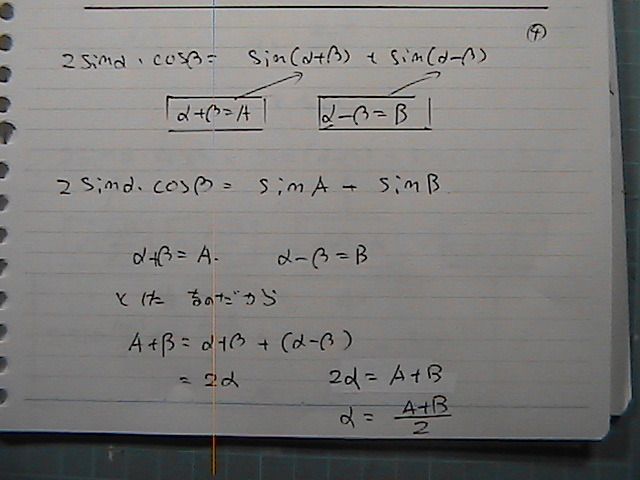 ④
2 sinα・cosβ = sin(α+β) + sin(α-β)
α+β=A α-β=B
2 sinα・cosβ = sinA + sinB
α+β=A. α-β=B
A+B = α+β + (α-β)
= 2α 2α = A+B
α = \frac{A+B}{2}